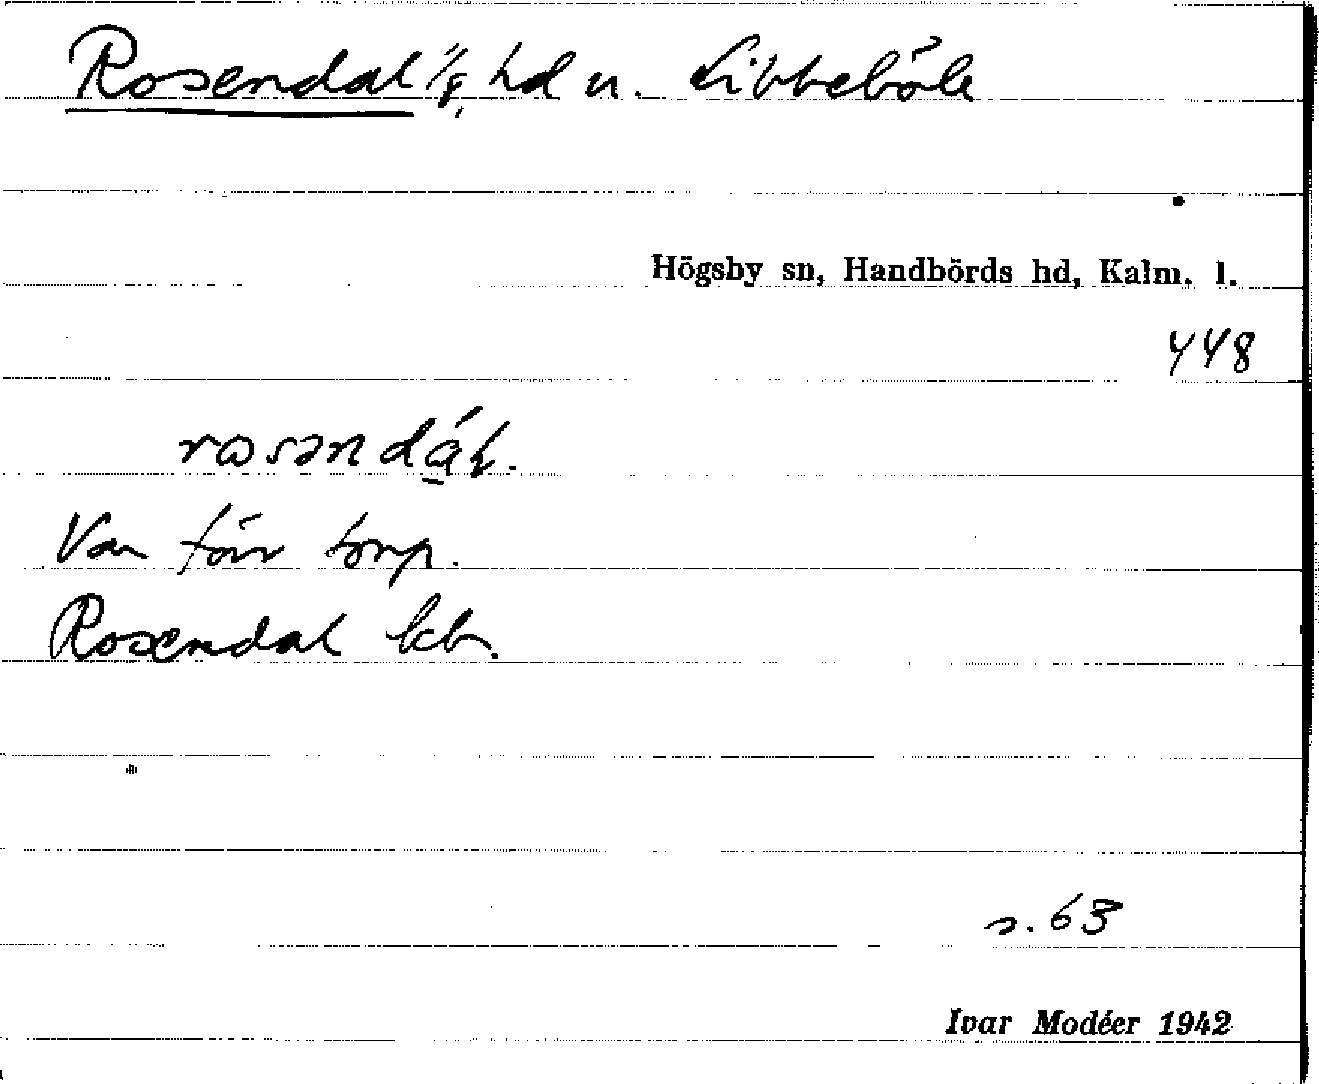 Rosendal 1/8 hd u. Libbeböle
Högsby sn, Handbörds hd, Kalm. l.
448
Var förr torp.
Rosendal kb.
s. 63
Ivar Modéer 1942